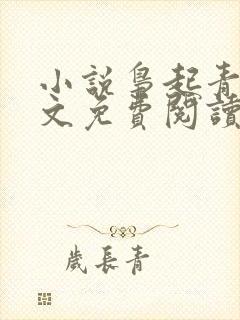 小説梟起青
文免費閱讀
歲長青